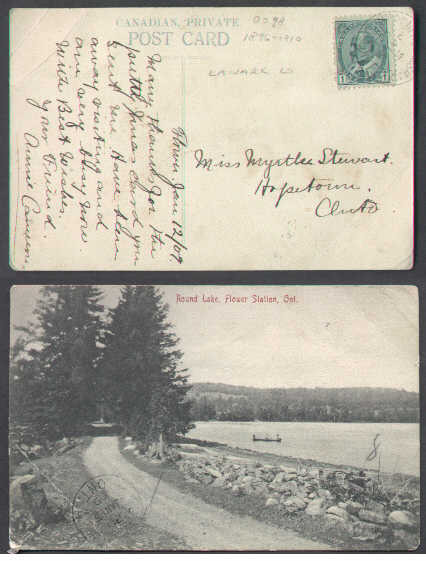 CANADIAN, PRIVATE
POST CARD
1896-1910
LANARK CO
Flower Jan 12/09
Many thanks for the
pretty Xmas card you
sent me. Have been
away visiting and
am very busy now.
With Best Wishes.
Your Friend.
Annie
Miss Myrtle Stewart.
Hopetown.
Onto.
Round Lake, Flower Station, Ont.
8